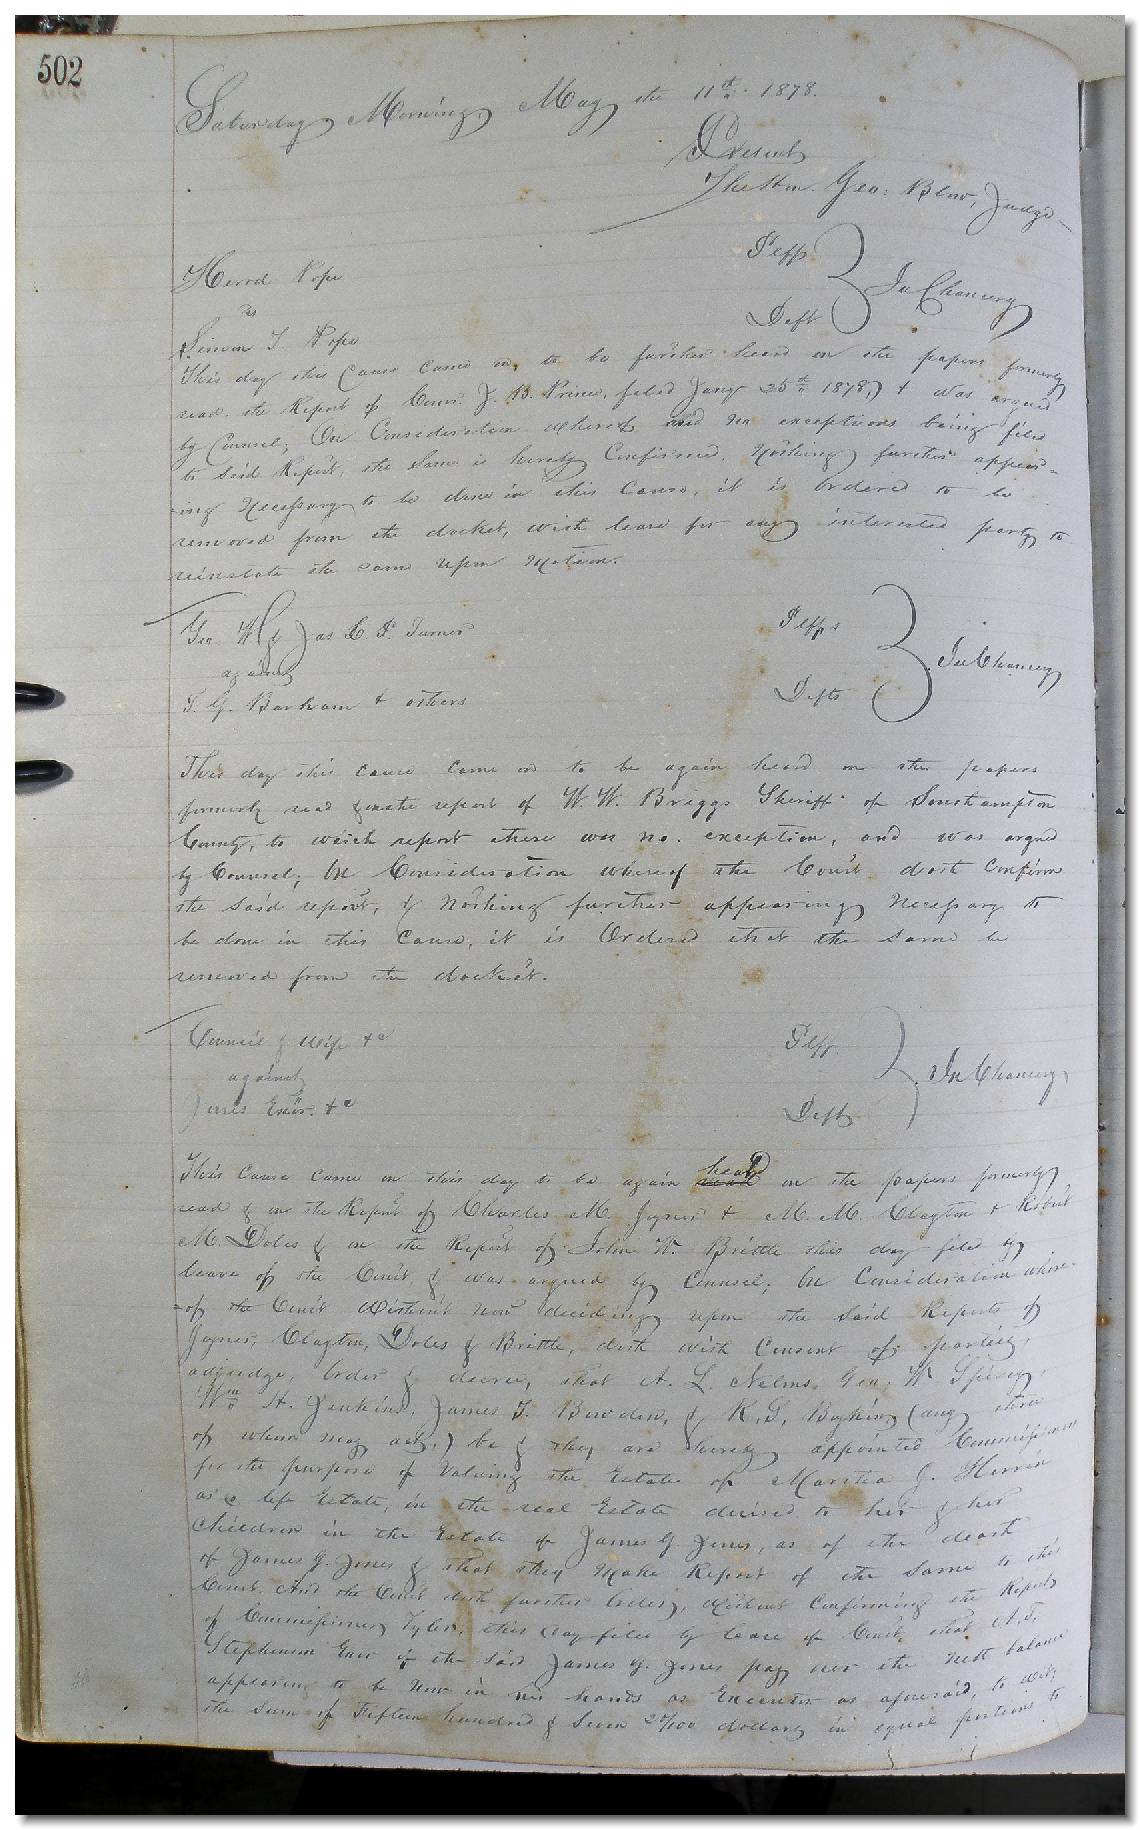 502
Saturday Morning, May the 11th. 1878.
Present
The Hon. Geo: Blow, Judge
Herod Pope Plff
vs In Chancery
Simon T. Pope Deft
This day this Cause came on, to be further heard on the papers formerly
read, the Report of Comr. J. B. Prince, filed Jany 25th 1878, & was argued
by Counsel; On Consideration whereof, and no exceptions being filed
to said Report, the same is hereby Confirmed. Nothing further appear-
-ing Necessary to be done in this Cause, it is ordered to be
removed from the docket, with leave for any interested party to
reinstate the same upon Motion.
Geo. W. & Jas L. P. Turner Plffs
against In Chancery
T. G. Barham & others Defts
This day this cause came on to be again heard on the papers
formerly read & on the report of W. W. Briggs Sheriff of Southampton
County, to which report there was no. exception, and was argued
by Counsel; On Consideration whereof the Court doth Confirm
the said report, & Nothing further appearing Necessary to
be done in this Cause, it is Ordered that the same be
removed from the docket.
Council & Wife &c Plff
against In Chancery,
Jones Exor. &c Deft
This Cause came on this day to be again heard on the papers formerly
read & on the Report of Charles M. Joyner & M. M. Clayton & Robert
M. Doles & on the Report of John W. Brittle this day filed by
leave of the Court, & was argued by Counsel; On Consideration where-
-of the Court Without now deciding upon the said Reports of
Joyner, Clayton, Doles & Brittle, doth with Consent of parties,
adjudge, Order & decree, that A. L. Nelms, Geo. W. Spivey,
Wm H. Jenkins, James T. Bowden, & K. S. Boykin (any three
of whom may act,) be & they are hereby appointed Commissioners
for the purpose of Valuing the Estate of Martha J. Herrin
as a life Estate, in the real Estate devised to her & her
Children in the Estate of James G. Jones, as of the death
of James G. Jones & that they Make Report of the same to this
Court. And the Court doth further Order, Without Confirming the Report
of Commissioner Tyler, this day filed by leave of Court, that A. T.
Stephenson Exor of the said James G. Jones pay over the Nett balance
appearing to be Now in his hands as Executor as aforesaid, to wit;
the sum of Fifteen hundred & Seven 24/100 dollars in equal portions to